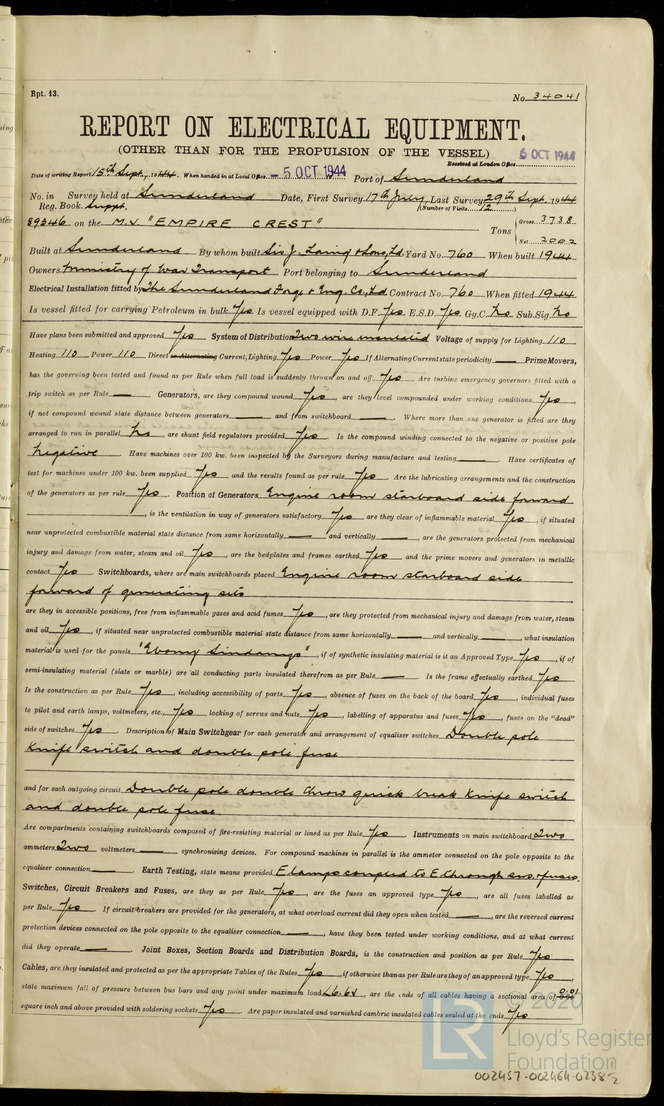 Rpt. 13.
No. 34041
REPORT ON ELECTRICAL EQUIPMENT.
(OTHER THAN FOR THE PROPULSION OF THE VESSEL)
6 OCT 1944
Received at London Office
Date of writing Report 15th Sept., 1944. When handed in at Local Office - 5 OCT 1944 Port of Sunderland
No. in Survey held at Sunderland Date, First Survey 17th July, Last Survey 29th Sept. 1944
Reg. Book. Suppt. (Number of Visits 12)
89346 on the M.V. "EMPIRE CREST" Tons { Gross 3738
Net 2002
Built at Sunderland By whom built Sir J. Laing & Sons, Ld. Yard No. 760 When built 1944
Owners Ministry of War Transport Port belonging to Sunderland
Electrical Installation fitted by The Sunderland Forge & Eng. Co., Ld. Contract No. 760 When fitted 1944
Is vessel fitted for carrying Petroleum in bulk Yes Is vessel equipped with D.F. Yes E.S.D. Yes Gy.C. No Sub.Sig. No
Have plans been submitted and approved Yes System of Distribution Two wire insulated Voltage of supply for Lighting 110
Heating 110 Power 110 Direct or Alternating Current, Lighting Yes Power Yes If Alternating Current state periodicity — Prime Movers,
has the governing been tested and found as per Rule when full load is suddenly thrown on and off Yes Are turbine emergency governors fitted with a
trip switch as per Rule — Generators, are they compound wound Yes are they level compounded under working conditions Yes,
if not compound wound state distance between generators — and from switchboard — Where more than one generator is fitted are they
arranged to run in parallel No, are shunt field regulators provided Yes Is the compound winding connected to the negative or positive pole
Negative Have machines over 100 kw. been inspected by the Surveyors during manufacture and testing — Have certificates of
test for machines under 100 kw. been supplied Yes and the results found as per rule Yes Are the lubricating arrangements and the construction
of the generators as per rule Yes Position of Generators Engine room starboard side forward
, is the ventilation in way of generators satisfactory Yes are they clear of inflammable material Yes, if situated
near unprotected combustible material state distance from same horizontally — and vertically —, are the generators protected from mechanical
injury and damage from water, steam and oil Yes, are the bedplates and frames earthed Yes and the prime movers and generators in metallic
contact Yes Switchboards, where are main switchboards placed Engine room starboard side
forward of generating sets
are they in accessible positions, free from inflammable gases and acid fumes Yes, are they protected from mechanical injury and damage from water, steam
and oil Yes, if situated near unprotected combustible material state distance from same horizontally — and vertically —, what insulation
material is used for the panels "Ebony Sindanyo", if of synthetic insulating material is it an Approved Type Yes, if of
semi-insulating material (slate or marble) are all conducting parts insulated therefrom as per Rule — Is the frame effectually earthed Yes
Is the construction as per Rule Yes, including accessibility of parts Yes, absence of fuses on the back of the board Yes, individual fuses
to pilot and earth lamps, voltmeters, etc. Yes locking of screws and nuts Yes, labelling of apparatus and fuses Yes, fuses on the "dead"
side of switches Yes Description of Main Switchgear for each generator and arrangement of equaliser switches Double pole
knife switch and double pole fuse
and for each outgoing circuit Double pole double throw quick break knife switch
and double pole fuse.
Are compartments containing switchboards composed of fire-resisting material or lined as per Rule Yes Instruments on main switchboard Two
ammeters Two voltmeters — synchronising devices. For compound machines in parallel is the ammeter connected on the pole opposite to the
equaliser connection — Earth Testing, state means provided E lamps coupled to E through sws. & fuses.
Switches, Circuit Breakers and Fuses, are they as per Rule Yes, are the fuses an approved type Yes, are all fuses labelled as
per Rule Yes If circuit breakers are provided for the generators, at what overload current did they open when tested —, are the reversed current
protection devices connected on the pole opposite to the equaliser connection —, have they been tested under working conditions, and at what current
did they operate — Joint Boxes, Section Boards and Distribution Boards, is the construction and position as per Rule Yes
Cables, are they insulated and protected as per the appropriate Tables of the Rules Yes, if otherwise than as per Rule are they of an approved type Yes,
state maximum fall of pressure between bus bars and any point under maximum load <6.6V, are the ends of all cables having a sectional area of 0.01
square inch and above provided with soldering sockets Yes Are paper insulated and varnished cambric insulated cables sealed at the ends Yes
© 2020
LR
Lloyd's Register
Foundation
002457-002464-0238 1/2